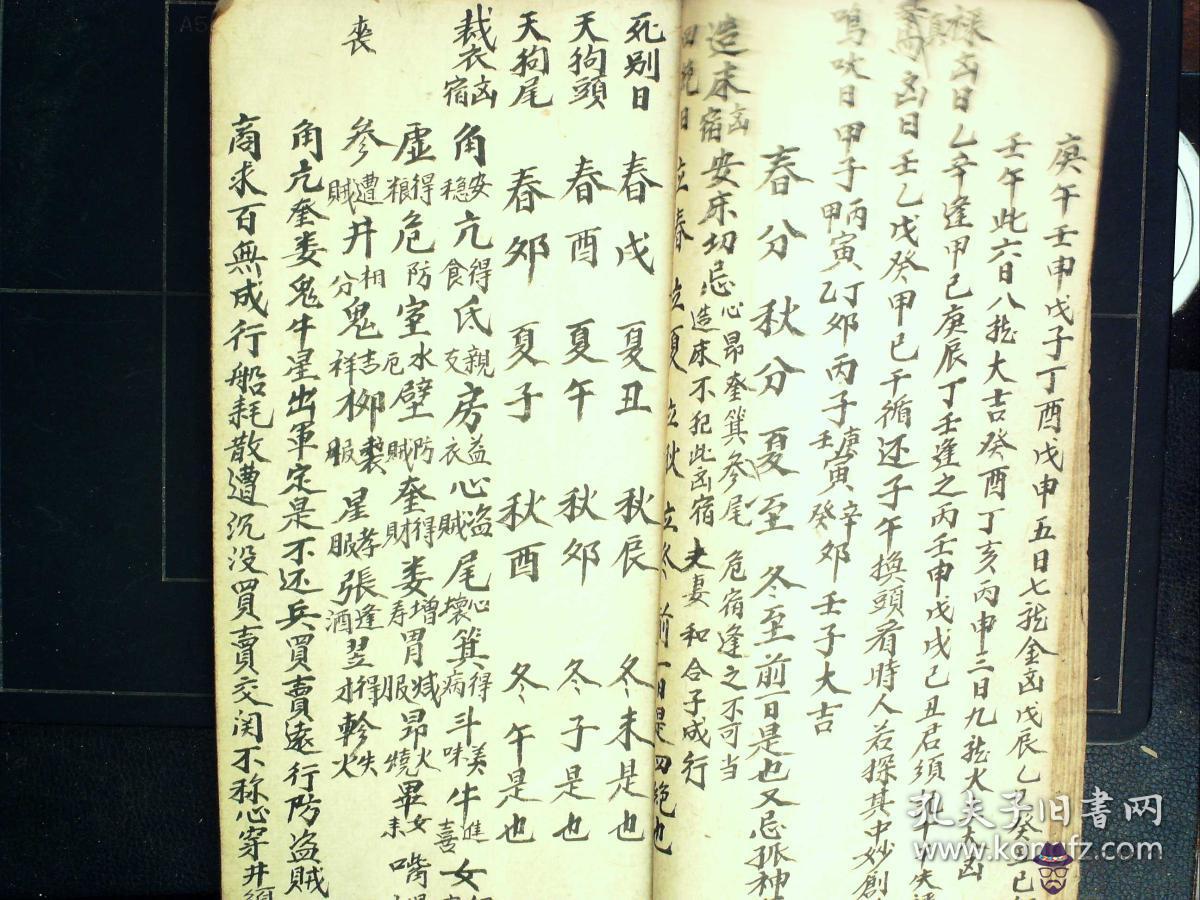 庚午壬申戊子丁酉戊申五日七龙金凶戊辰乙
壬午此六日八龙大吉癸酉丁亥丙申三日九龙火大凶
禄凶日乙辛逢甲己庚辰丁壬逢之丙壬申戊戌己丑君须
凶日壬乙戊癸甲己干循还子午换頭看時人若探其中妙創
鳴吠日甲子丙寅丁卯丙子庚寅辛卯壬子大吉
甲乙壬癸
春分 秋分 夏至 冬至前一日是也又忌孤神
造床凶宿安床切忌心昴奎箕參尾危宿逢之不可当
造床不犯此凶宿夫妻和合子成行
四绝日 立春 立夏 立秋 立冬 前一日是四绝也
死别日 春戌 夏丑 秋辰 冬未是也
天狗頭 春酉 夏午 秋卯 冬子是也
天狗尾 春卯 夏子 秋酉 冬午是也
裁衣凶宿 角安穩亢得食氐親友房益衣心盗賊尾心壞箕得病斗美味牛進喜女
虚得粮危防室水厄壁防賊奎得財婁增寿胃減服昴火燒畢女未嘴
喪
參遭賊井相分鬼吉祥柳喪服星孝服張逢酒翌得才軫失火
角亢奎娄鬼牛星出軍定是不还兵買賣遠行防盗賊
商求百無成行船耗散遭沉没買賣交関不称心穿井
孔夫子旧書网
www.kongfz.com